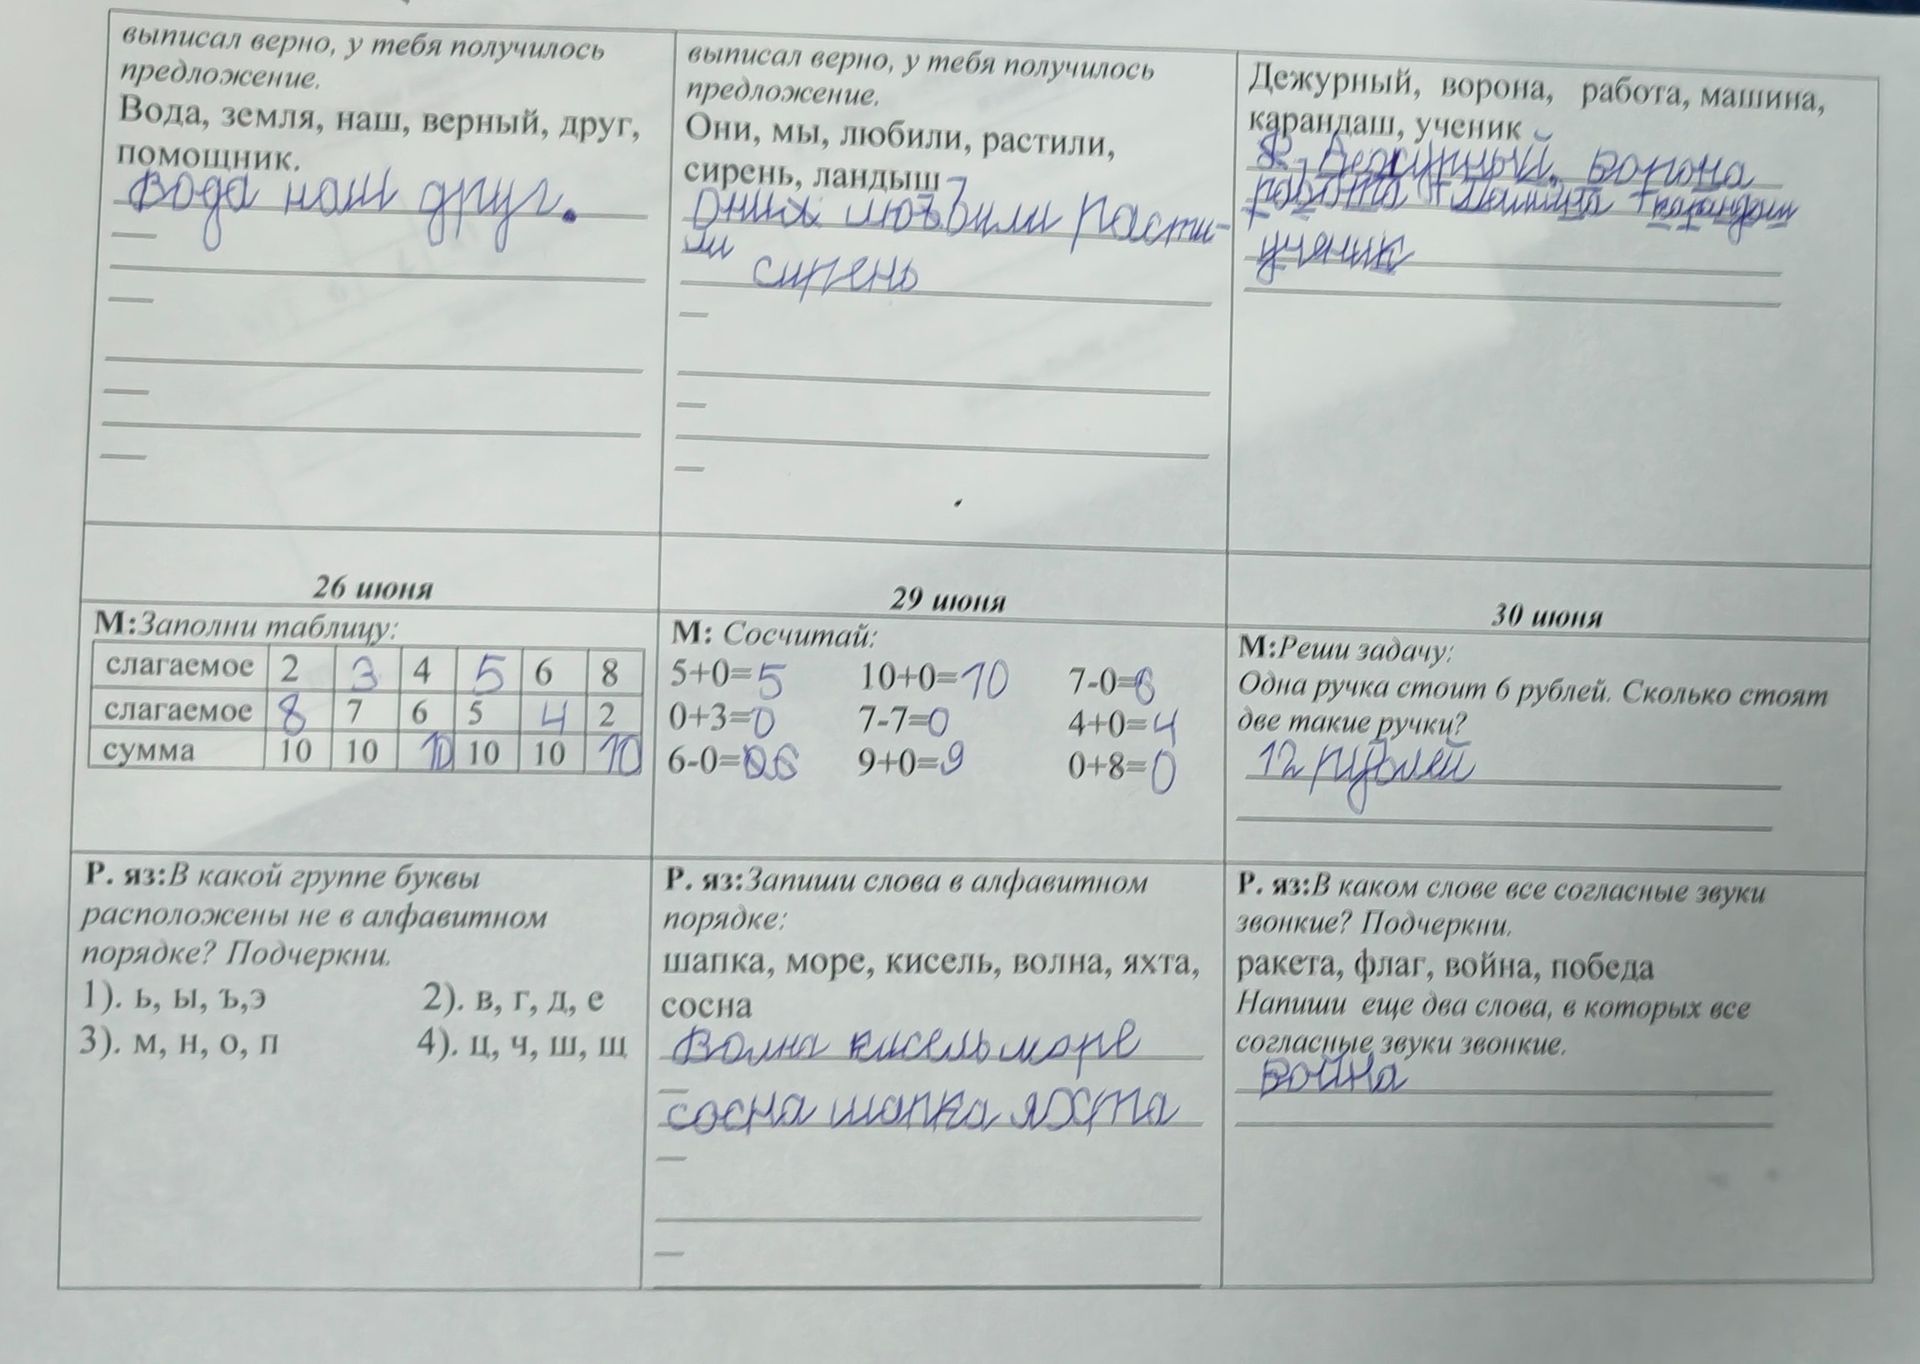 выписал верно, у тебя получилось
предложение.
Вода, земля, наш, верный, друг,
помощник.
Вода наш друг.
выписал верно, у тебя получилось
предложение.
Они, мы, любили, растили,
сирень, ландыш
любили расти-
ли
сирень
Дежурный, ворона, работа, машина,
карандаш, ученик
Дежурный, ворона
работа машина карандаш
ученик
26 июня
М:Заполни таблицу:
слагаемое 2 3 4 5 6 8
слагаемое 8 7 6 5 4 2
сумма 10 10 10 10 10 10
29 июня
М: Сосчитай:
5+0=5 10+0=10 7-0=6
0+3=0 7-7=0 4+0=4
6-0= 9+0=9 0+8=0
30 июня
М:Реши задачу:
Одна ручка стоит 6 рублей. Сколько стоят
две такие ручки?
12 рублей
Р. яз:В какой группе буквы
расположены не в алфавитном
порядке? Подчеркни.
1). ь, ы, ъ,э 2). в, г, д, е
3). м, н, о, п 4). ц, ч, ш, щ
Р. яз:Запиши слова в алфавитном
порядке:
шапка, море, кисель, волна, яхта,
сосна
волна кисель море
сосна шапка яхта
Р. яз:В каком слове все согласные звуки
звонкие? Подчеркни.
ракета, флаг, война, победа
Напиши еще два слова, в которых все
согласные звуки звонкие.
война